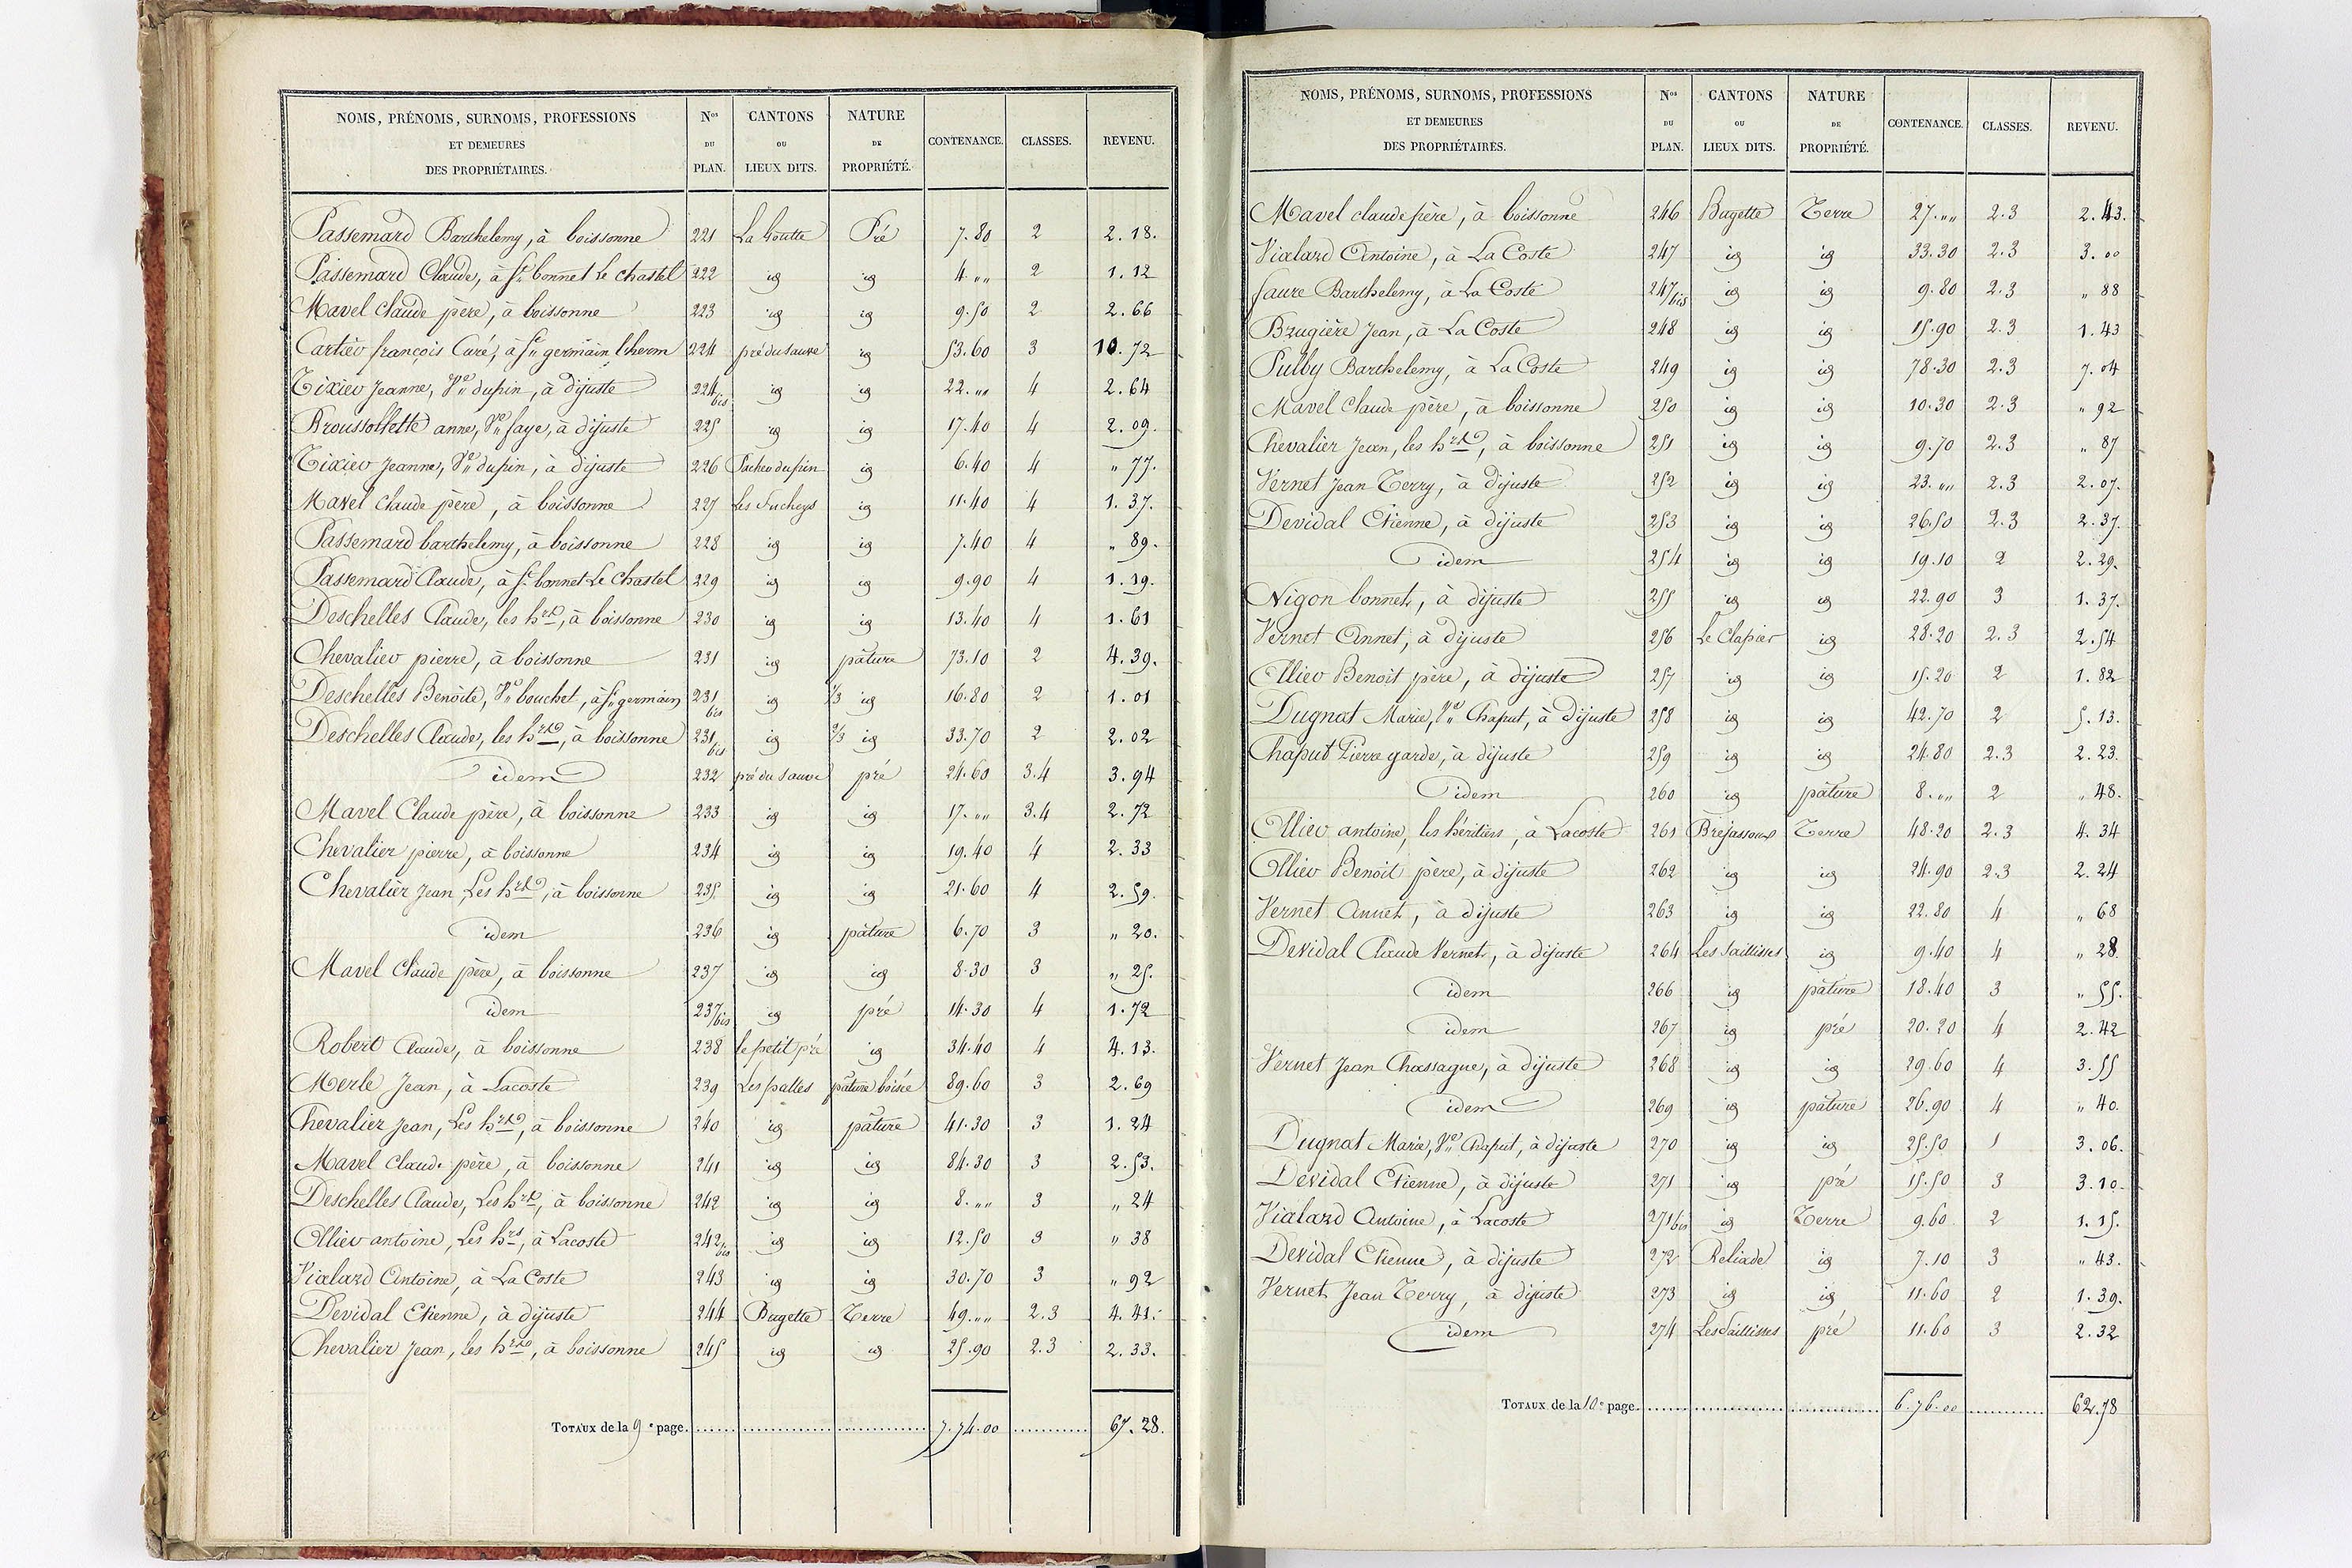 NOMS, PRÉNOMS, SURNOMS, PROFESSIONS ET DEMEURES DES PROPRIÉTAIRES. Nos DU PLAN. CANTONS OU LIEUX DITS. NATURE DE PROPRIÉTÉ. CONTENANCE. CLASSES. REVENU.
Passemard Barthelemy, à boissonne 221 La Goutte Pré 7.80 2 2.18.
Passemard Claude, à St bonnet Le chastel 222 id id 4 „„ 2 1.12
Mavel Claude père, à boissonne 223 id id 9.50 2 2.66
Cartier françois Curé, à St germain lherm 224 pré du sauve id 53.60 3 10.72
Tixier Jeanne, Ve dupin, à dijuste 224 bis id id 22.„„ 4 2.64
Broussollette anne, Ve faye, à dijuste 225 id id 17.40 4 2.09.
Tixier Jeanne, Ve dupin, à dijuste 226 Pacher dupin id 6.40 4 „ 77.
Mavel Claude père, à boissonne 227 Les Sucheys id 11.40 4 1.37.
Passemard barthelemy, à boissonne 228 id id 7.40 4 „ 89.
Passemard Claude, à St bonnet Le Chastel 229 id id 9.90 4 1.19.
Deschelles Claude, les hrs, à boissonne 230 id id 13.40 4 1.61
Chevalier pierre, à boissonne 231 id pâture 73.10 2 4.39.
Deschelles Benoite, Ve bouchet, à St germain 231 bis id 1/3 id 16.80 2 1.01
Deschelles Claude, les hrs, à boissonne 231 bis id 2/3 id 33.70 2 2.02
idem 232 pré du sauve pré 24.60 3.4 3.94
Mavel Claude père, à boissonne 233 id id 17.„„ 3.4 2.72
Chevalier pierre, à boissonne 234 id id 19.40 4 2.33
Chevalier Jean, Les hrs, à boissonne 235 id id 21.60 4 2.59.
idem 236 id pâture 6.70 3 „ 20.
Mavel Claude père, à boissonne 237 id id 8.30 3 „ 25.
idem 237 bis id pré 14.30 4 1.72
Robert Claude, à boissonne 238 le petit pré id 34.40 4 4.13.
Merle Jean, à Lacoste 239 Les palles pâture boisée 89.60 3 2.69
Chevalier Jean, Les hrs, à boissonne 240 id pâture 41.30 3 1.24
Mavel Claude père, à boissonne 241 id id 84.30 3 2.53.
Deschelles Claude, Les hrs, à boissonne 242 id id 8.„„ 3 „ 24
Ollier antoine, Les hrs, à Lacoste 242 bis id id 12.50 3 „ 38
Vialard Antoine, à La Coste 243 id id 30.70 3 „ 92
Devidal Etienne, à dijuste 244 Bugette Terre 49.„„ 2.3 4.41.
Chevalier Jean, les hrs, à boissonne 245 id id 25.90 2.3 2.33.
TOTAUX de la 9e page. 7.74.00 67.28.
NOMS, PRÉNOMS, SURNOMS, PROFESSIONS ET DEMEURES DES PROPRIÉTAIRES. Nos DU PLAN. CANTONS OU LIEUX DITS. NATURE DE PROPRIÉTÉ. CONTENANCE. CLASSES. REVENU.
Mavel claude père, à boissonne 246 Bugette Terre 27.„„ 2.3 2.43.
Vialard Antoine, à La Coste 247 id id 33.30 2.3 3.00
faure Barthelemy, à La Coste 247 bis id id 9.80 2.3 „ 88
Brugière Jean, à La Coste 248 id id 15.90 2.3 1.43
Pulby Barthelemy, à La Coste 249 id id 78.30 2.3 7.04
Mavel Claude père, à boissonne 250 id id 10.30 2.3 „ 92
Chevalier Jean, les hrs, à boissonne 251 id id 9.70 2.3 „ 87
Vernet Jean Terry, à Dijuste 252 id id 23.„„ 2.3 2.07.
Devidal Etienne, à dijuste 253 id id 26.50 2.3 2.37.
idem 254 id id 19.10 2 2.29.
Nigon bonnet, à dijuste 255 id id 22.90 3 1.37.
Vernet Annet, à dijuste 256 Le Clapier id 28.20 2.3 2.54
Ollier Benoit père, à dijuste 257 id id 15.20 2 1.82
Dugnat Marie, Ve Chaput, à Dijuste 258 id id 42.70 2 5.13.
Chaput Pierre garde, à dijuste 259 id id 24.80 2.3 2.23.
idem 260 id pâture 8.„„ 2 „ 48.
Ollier antoine, les héritiers, à Lacoste 261 Brejassoux Terre 48.20 2.3 4.34
Ollier Benoit père, à dijuste 262 id id 24.90 2.3 2.24
Vernet Annet, à dijuste 263 id id 22.80 4 „ 68
Devidal Claude Vernet, à dijuste 264 Les Saillisses id 9.40 4 „ 28.
idem 266 id pâture 18.40 3 „ 55.
idem 267 id pré 20.20 4 2.42
Vernet Jean Chassagne, à dijuste 268 id id 29.60 4 3.55
idem 269 id pâture 26.90 4 „ 40.
Dugnat Marie, Ve Chaput, à dijuste 270 id id 25.50 1 3.06.
Devidal Etienne, à dijuste 271 id pré 15.50 3 3.10.
Vialard Antoine, à Lacoste 271 bis id Terre 9.60 2 1.15.
Devidal Etienne, à dijuste 272 Reliade id 7.10 3 „ 43.
Vernet Jean Terry, à dijuste 273 id id 11.60 2 1.39.
idem 274 Les Saillisses pré 11.60 3 2.32
TOTAUX de la 10e page. 6.76.00 62.78